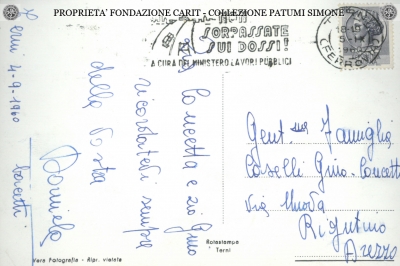 PROPRIETA' FONDAZIONE CARIT - COLLEZIONE PATUMI SIMONE
NON
SORPASSATE
SUI DOSSI!
A CURA DEL MINISTERO LAVORI PUBBLICI
TERNI
18-19
(FERROVIA)
4-9-1960
Concetta e zio Gino
ricordatevi sempre
della vostra
Daniela
Gent.ma Famiglia
Caselli Gino-Concetta
Via Nuova
Rigutino
Arezzo
Rotostampa
Terni
Vera Fotografia - Ripr. vietata